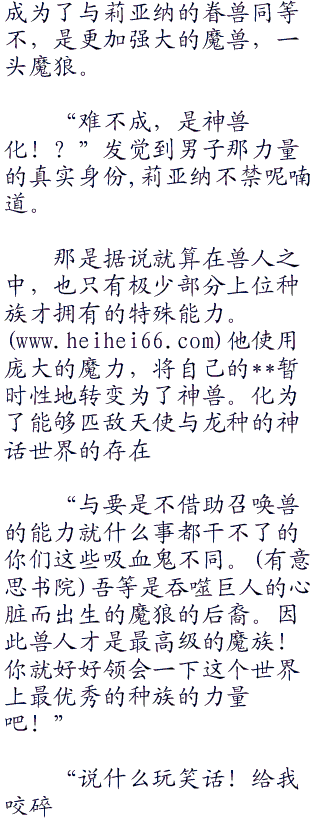 成为了与莉亚纳的眷兽同等
不，是更加强大的魔兽，一
头魔狼。
“难不成，是神兽
化！？”发觉到男子那力量
的真实身份,莉亚纳不禁呢喃
道。
那是据说就算在兽人之
中，也只有极少部分上位种
族才拥有的特殊能力。
(www.heihei66.com)他使用
庞大的魔力，将自己的**暂
时性地转变为了神兽。化为
了能够匹敌天使与龙种的神
话世界的存在
“与要是不借助召唤兽
的能力就什么事都干不了的
你们这些吸血鬼不同。(有意
思书院)吾等是吞噬巨人的心
脏而出生的魔狼的后裔。因
此兽人才是最高级的魔族！
你就好好领会一下这个世界
上最优秀的种族的力量
吧！”
“说什么玩笑话！给我
咬碎